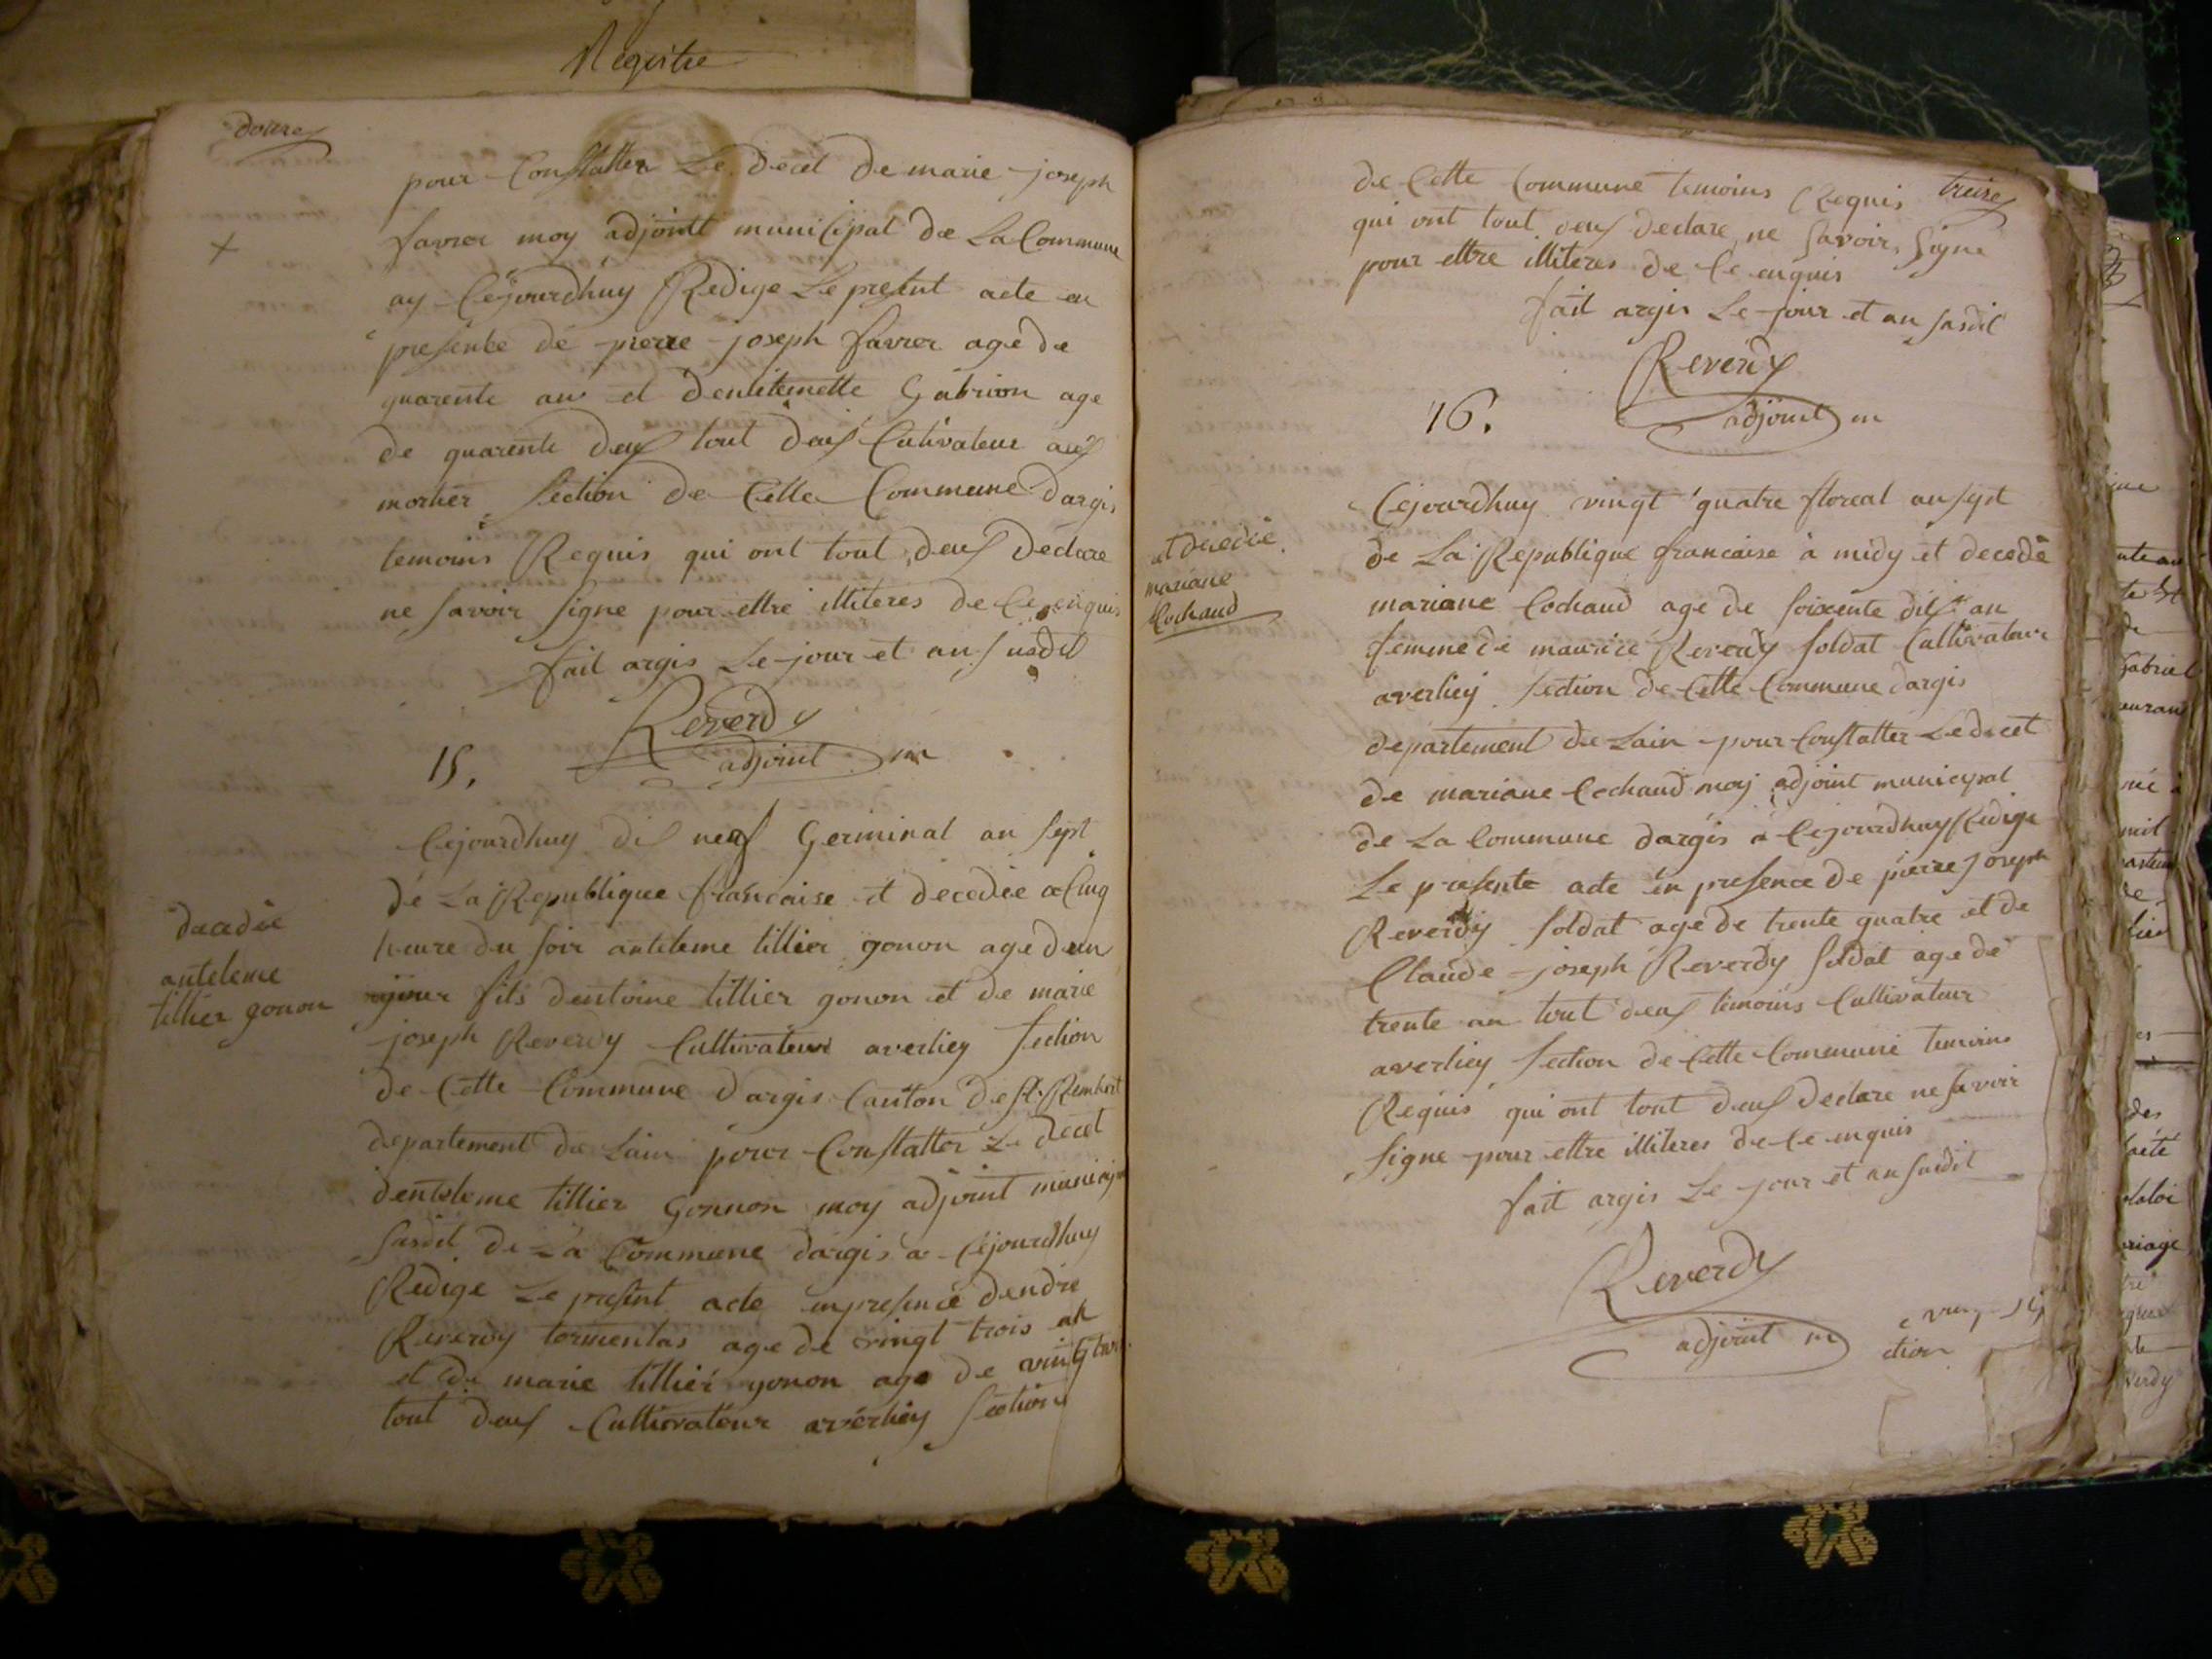 Registre
douze
pour Constatter Le decet de marie joseph
favrer moy adjointt municipal de La Commune
ay Cejourdhuy Redige Le present acte en
presente de pierre joseph favrer age de
quarente ans et dentitemette Gabrion age
de quarente deux tout deux Cutivateur aux
mortier section de Cette Commune dargis
temoins Requis qui ont tout deux declare
ne savoir signe pour ettre illiteres de Ce enquis
fait argis Le jour et an susdit
Reverdy
adjoint m
15.
decedée
anteleme
tillier gonon
Cejourdhuy dix neuf Germinal an sept
de La Republique francaise et decedée a Cinq
heure du soir anteleme tillier gonon age dun
jour fils dentoine tillier gonon et de marie
joseph Reverdy Cultivateur averliey section
de Cette Commune dargis Canton de st Rembert
departement de Lain pour Constatter Le decet
denteleme tillier Gonnon moy adjoint municipal
susdit de La Commune dargis a Cejourdhuy
Redige Le present acte enpresence dendre
Reverdy tormentas age de vingt trois an
et de marie tillier gonon age de vingt
tout deux Cultivateur averliey section
treize
de Cette Commune temoins Requis
qui ont tout deux declare ne savoir signe
pour ettre illiteres de Ce enquis
fait argis Le jour et an susdit
Reverdy
adjoint m
16.
et decedée
mariane
Cochaud
Cejourdhuy vingt quatre floreal an sept
de La Republique francaise à midy et decedè
mariane Cochaud age de soixente dix an
femme de maurice Reverdy soldat Cultivateur
averliey section de Cette Commune dargis
departement de Lain pour Constatter Le decet
de mariane Cochaud moy adjoint municipal
de La Commune dargis a Cejourdhuy Redige
Le presente acte en presence de pierre joseph
Reverdy soldat age de trente quatre et de
Claude joseph Reverdy soldat age de
trente an tout deux temoins Cultivateur
averliey section de Cette Commune temoins
Requis qui ont tout deux declare ne savoir
signe pour ettre illiteres de Ce enquis
fait argis Le jour et an susdit
Reverdy
adjoint m
ction